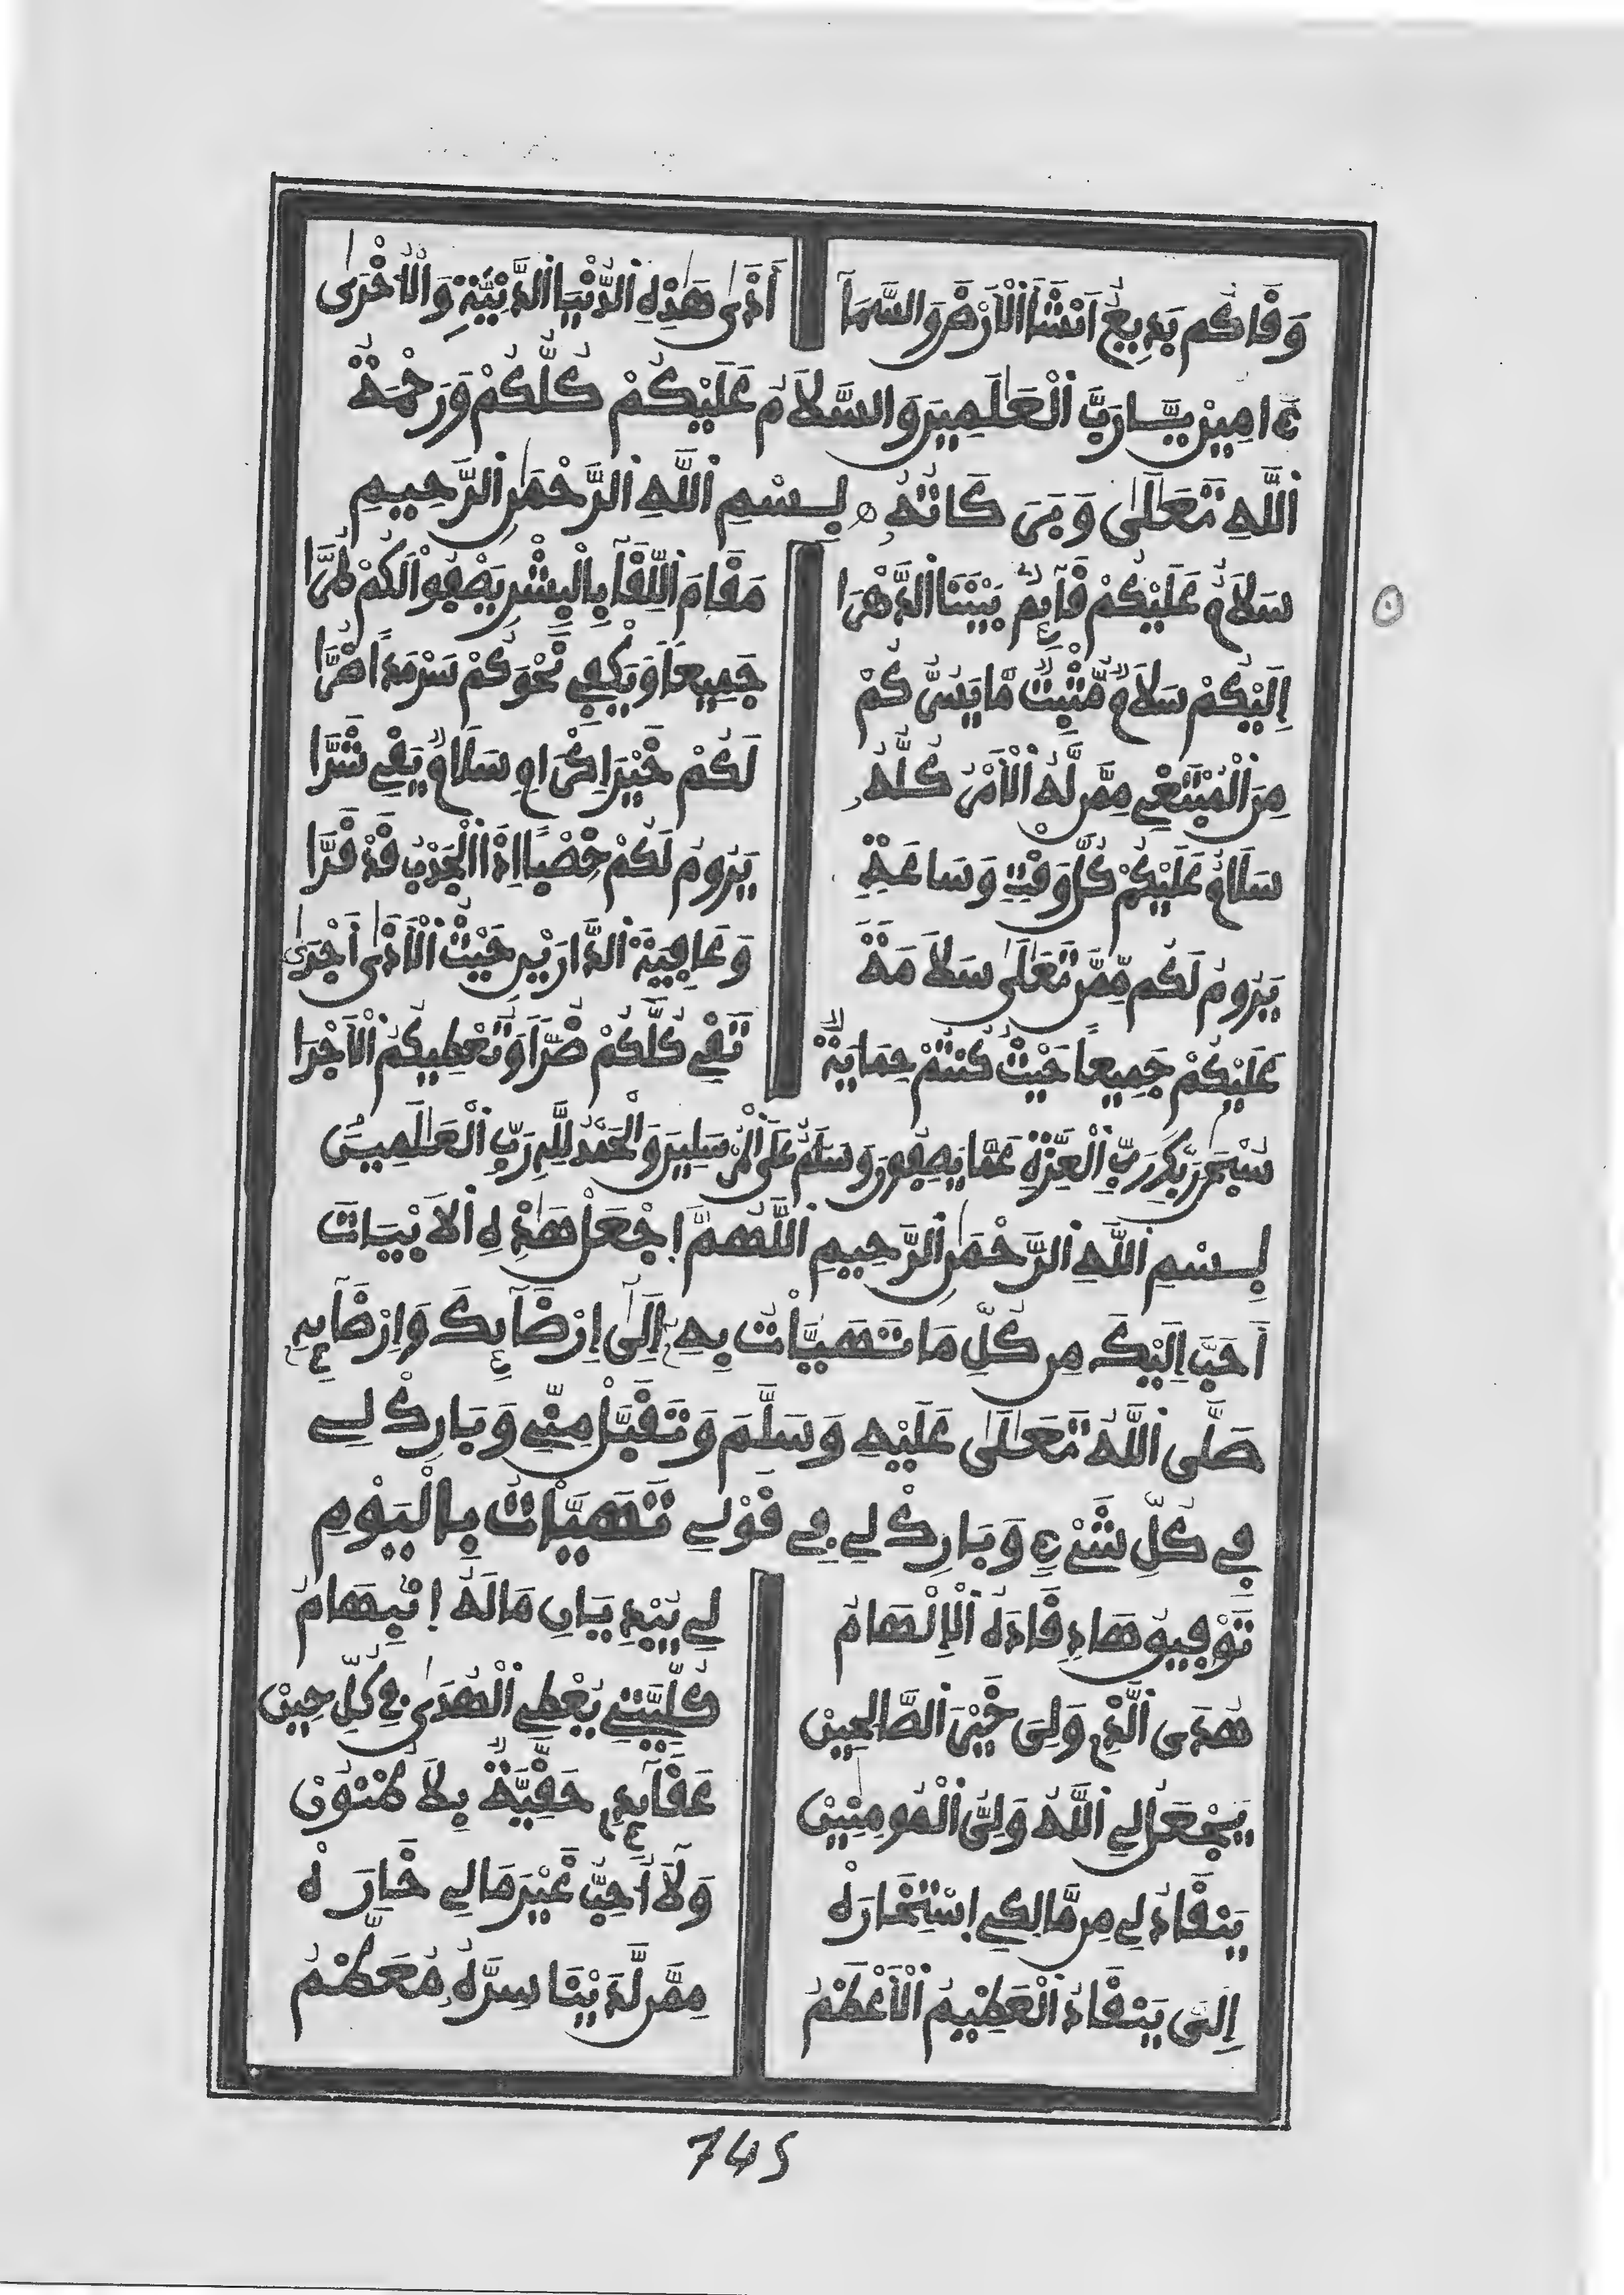 وَقَاكُم بَدِيعٌ اَنْشَأَ الْاَرْضَ وَالسَّمَآ أَذَىٰ هَٰذِهِ الدُّنْيَا الدَّنِيَّةِ وَالْاُخْرَىٰ
ءَامِينْ يَارَبَّ الْعَٰلَمِينَ وَالسَّلَامُ عَلَيْكُمْ كُلَّكُمْ وَرَحْمَةُ
اللَّهِ تَعَلَىٰ وَبَرَكَاتُهُ بِسْمِ اللَّهِ الرَّحْمَٰنِ الرَّحِيمِ
سَلَامٌ عَلَيْكُمْ قَآئِمٌ بَيْنَنَا الدَّهْرَا مَقَامَ اللِّقَآ بِالْبِشْرِ يَصْفُوا لَكُمْ طُرَّا
إِلَيْكُمْ سَلَامٌ مُّثْبِتٌ مَّا يَسُرُّكُمْ جَمِيعاً وَيَكْفِي نَحْوَكُمْ سَرْمَداً ضُرَّا
مِنَ الْمُبْتَغِي مِمَّن لَّهُ الْاَمْرُ كُلُّهُ لَكُمْ خَيْرَ إِكْرَامٍ سَلَامٌ يَقِي شَرَّا
سَلَامٌ عَلَيْكُمْ كُلَّ وَقْتٍ وَسَاعَةٍ يَرُومُ لَكُمْ خِصْباً اِذَا الْجَدْبُ قَدْ قَرَّا
يَرُومُ لَكُم مِّمَّن تَعَٰلَىٰ سَلَامَةً وَعَافِيَةَ الدَّارَيْنِ حَيْثُ الْاَذَىٰ أَجْرَىٰ
عَلَيْكُمْ جَمِيعاً حَيْثُ كُنْتُمْ حِمَايَةٌ تَقِي كُلَّكُمْ ضُرّاً وَتُعْطِيكُمُ الْاَجْرَا
سُبْحَٰنَ رَبِّكَ رَبِّ الْعِزَّةِ عَمَّا يَصِفُونَ وَسَلَٰمٌ عَلَى الْمُرْسَلِينَ وَالْحَمْدُ لِلَّهِ رَبِّ الْعَٰلَمِينَ
بِسْمِ اللَّهِ الرَّحْمَٰنِ الرَّحِيمِ اللَّهُمَّ اجْعَلْ هَٰذِهِ الْاَبْيَاتَ
أَحَبَّ إِلَيْكَ مِن كُلِّ مَا تَهَيَّأَتْ بِهِ إِلَىٰ إِرْضَآئِكَ وَإِرْضَآئِهِ
صَلَّى اللَّهُ تَعَٰلَىٰ عَلَيْهِ وَسَلَّمَ وَتَقَبَّلْ مِنِّي وَبَارِكْ لِي
فِي كُلِّ شَيْءٍ وَبَارِكْ لِي فِي قَوْلِي تَهَيَّأَتْ بِالْيَوْمِ
تَوْفِيقُ هَادٍ قَادَهُ الْاِلْهَامُ لِي يُبْدِ بَيَانِ مَالَهُ اِنْبِهَامُ
هُدَى الَّذِي وَلِيَ خَيْرَ الصَّالِحِينْ كُلِّيَّتِي يُعْطِي الْهُدَىٰ فِي كُلِّ حِينْ
يَجْعَلُ لِي اللَّهُ وَلِيُّ الْمُومِنِينْ عَقَآئِدِي حَقِّيَّةً بِلَا ظُنُونْ
يَنْقَادُ لِي مِن مَّالِكِي اسْتِخَارَهْ وَلَا أُحِبُّ غَيْرَ مَالِي خَارَهْ
إِلَيَّ يَنْقَادُ الْعَظِيمُ الْاَعْظَمُ مِمَّن لَّدَيْنَا سِرُّهُ مُعَظَّمُ
745